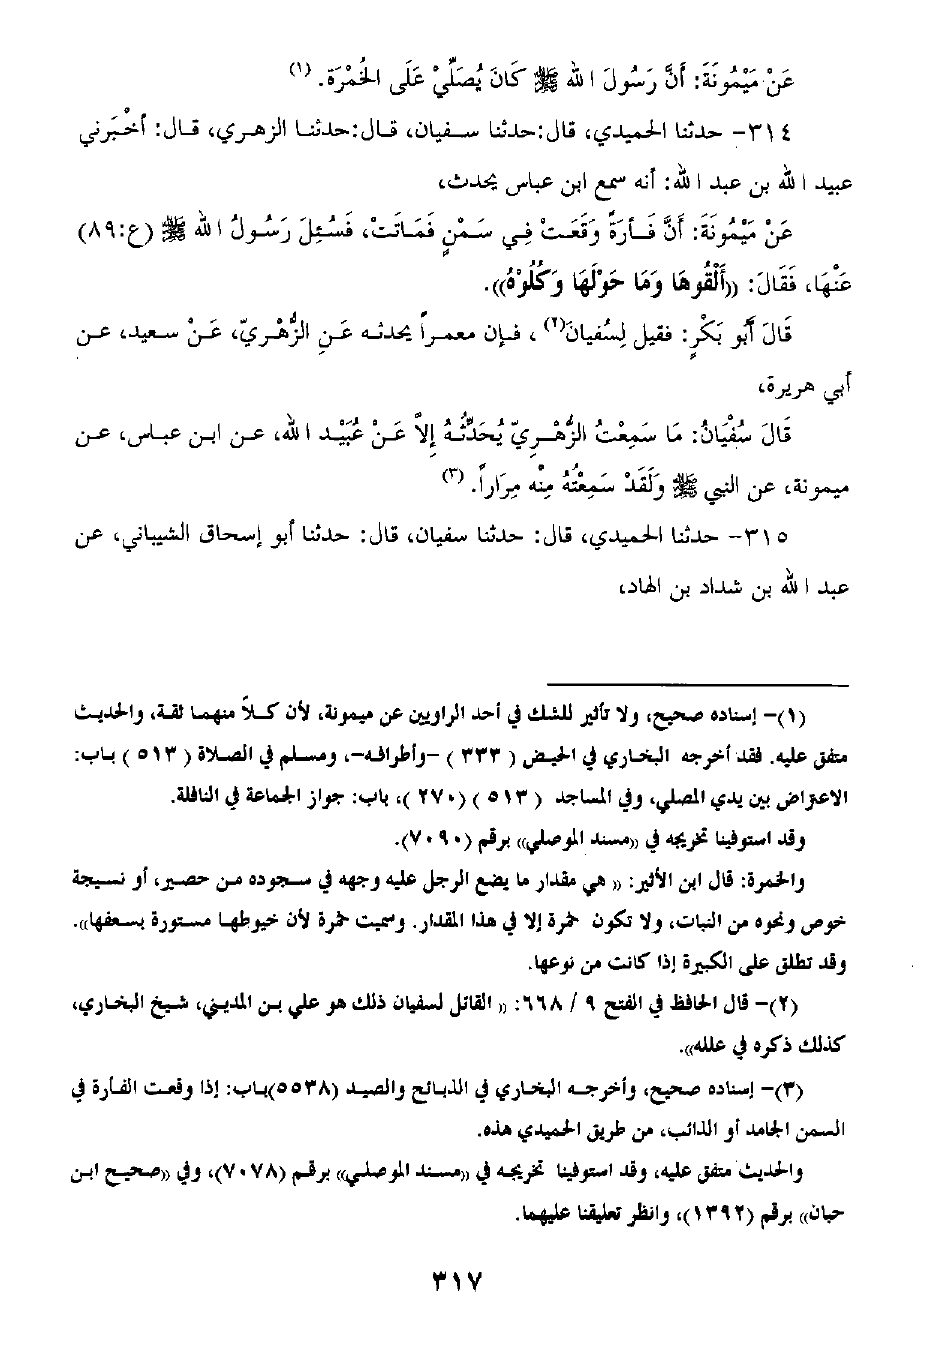 عَنْ مَيْمُونَةَ: أَنَّ رَسُولَ الله ﷺ كَانَ يُصَلِّيْ عَلَى الخُمْرَة. (١)
٣١٤- حدثنا الحميدي، قال:حدثنا سفيان، قال:حدثنا الزهري، قال: أَخْبَرني
عبيد الله بن عبد الله: أنه سمع ابن عباس يحدث،
عَنْ مَيْمُونَةَ: أَنَّ فَأرَةً وَقَعَتْ فِي سَمْنٍ فَمَاتَتْ، فَسُئِلَ رَسُولُ الله ﷺ (ع:٨٩)
عَنْهَا، فَقَالَ: ((أَلْقُوهَا وَمَا حَوْلَهَا وَكُلُوْهُ)).
قَالَ أَبُو بَكْرٍ: فقيل لِسُفْيانَ(٢) ، فإن معمراً يحدثه عَنِ الزُّهْرِيّ، عَنْ سعيد، عن
أبي هريرة،
قَالَ سُفْيَانُ: مَا سَمِعْتُ الزُّهْرِيّ يُحَدِّثُهُ إِلاَّ عَنْ عُبَيْدِ الله، عن ابن عباس، عن
ميمونة، عن النبي ﷺ وَلَقَدْ سَمِعْتُهُ مِنْه مِرَاراً. (٣)
٣١٥- حدثنا الحميدي، قال: حدثنا سفيان، قال: حدثنا أبو إسحاق الشيباني، عن
عبد الله بن شداد بن الهاد،
(١)- إسناده صحيح، ولا تأثير للشك في أحد الراويين عن ميمونة، لأن كلاً منهما ثقة، والحديث
متفق عليه. فقد أخرجه البخاري في الحيض (٣٣٣) -وأطرافه-، ومسلم في الصلاة (٥١٣) باب:
الاعتراض بين يدي المصلي، وفي المساجد (٥١٣) (٢٧٠)، باب: جواز الجماعة في النافلة.
وقد استوفينا تخريجه في ((مسند الموصلي)) برقم (٧٠٩٠).
والخمرة: قال ابن الأثير: (( هي مقدار ما يضع الرجل عليه وجهه في سجوده من حصير، أو نسيجة
خوص ونحوه من النبات، ولا تكون خمرة إلا في هذا المقدار. وسميت خمرة لأن خيوطها مستورة بسعفها)).
وقد تطلق على الكبيرة إذا كانت من نوعها.
(٢)- قال الحافظ في الفتح ٩ / ٦٦٨: (( القائل لسفيان ذلك هو علي بن المديني، شيخ البخاري،
كذلك ذكره في علله)).
(٣)- إسناده صحيح، وأخرجه البخاري في الذبائح والصيد (٥٥٣٨)باب: إذا وقعت الفأرة في
السمن الجامد أو الذائب، من طريق الحميدي هذه.
والحديث متفق عليه، وقد استوفينا تخريجه في ((مسند الموصلي)) برقم (٧٠٧٨)، وفي ((صحيح ابن
حبان)) برقم (١٣٩٢)، وانظر تعليقنا عليهما.
٣١٧